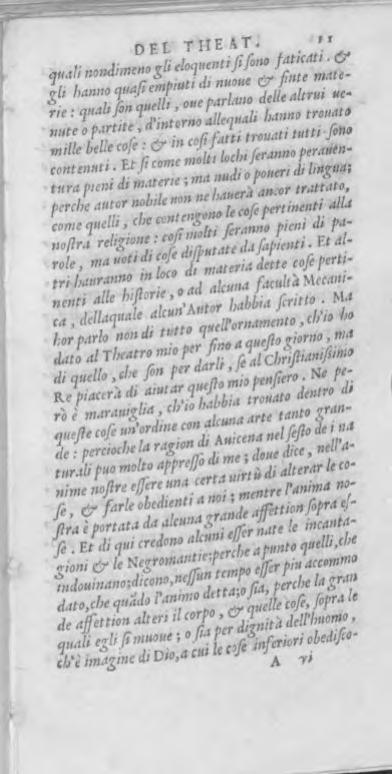 DEL THEAT. 11
quali nondimeno gli eloquenti si sono faticati. &
gli hanno quasi empiuti di nuoue & finte mate-
rie: quali son quelli, oue parlano delle altrui ue-
nute o partite, d'intorno allequali hanno trouato
mille belle cose: & in cosi fatti trouati tutti sono
contenuti. Et si come molti lochi seranno perauen-
tura pieni di materie; ma nudi o poueri di lingua;
perche autor nobile non ne hauerà ancor trattato,
come quelli, che contengono le cose pertinenti alla
nostra religione: cosi molti seranno pieni di pa-
role, ma uoti di cose disputate da sapienti. Et al-
tri hauranno in loco di materia dette cose perti-
nenti alle historie, o ad alcuna facultà Mecani-
ca, dellaquale alcun'Autor habbia scritto. Ma
hor parlo non di tutto quell'ornamento, ch'io ho
dato al Theatro mio per fino a questo giorno, ma
di quello, che son per darli, se al Christianissimo
Re piacerà di aiutar questo mio pensiero. Ne pe-
rò è marauiglia, ch'io habbia trouato dentro di
queste cose un'ordine con alcuna arte tanto gran-
de: percioche la ragion di Auicena nel sesto de i na
turali puo molto appresso di me; doue dice, nell'a-
nime nostre essere una certa uirtù di alterar le co-
se, & farle obedienti a noi; mentre l'anima no-
stra è portata da alcuna grande affettion sopra es-
se. Et di qui credono alcuni esser nate le incanta-
gioni & le Negromantie: perche a punto quelli, che
indouinano; dicono, nessun tempo esser piu accommo
dato, che quãdo l'animo detta; o sia, perche la gran
de affettion alteri il corpo, & quelle cose, sopra le
quali egli si muoue; o sia per dignità dell'huomo,
ch'è imagine di Dio, a cui le cose inferiori obedisco-
A vi